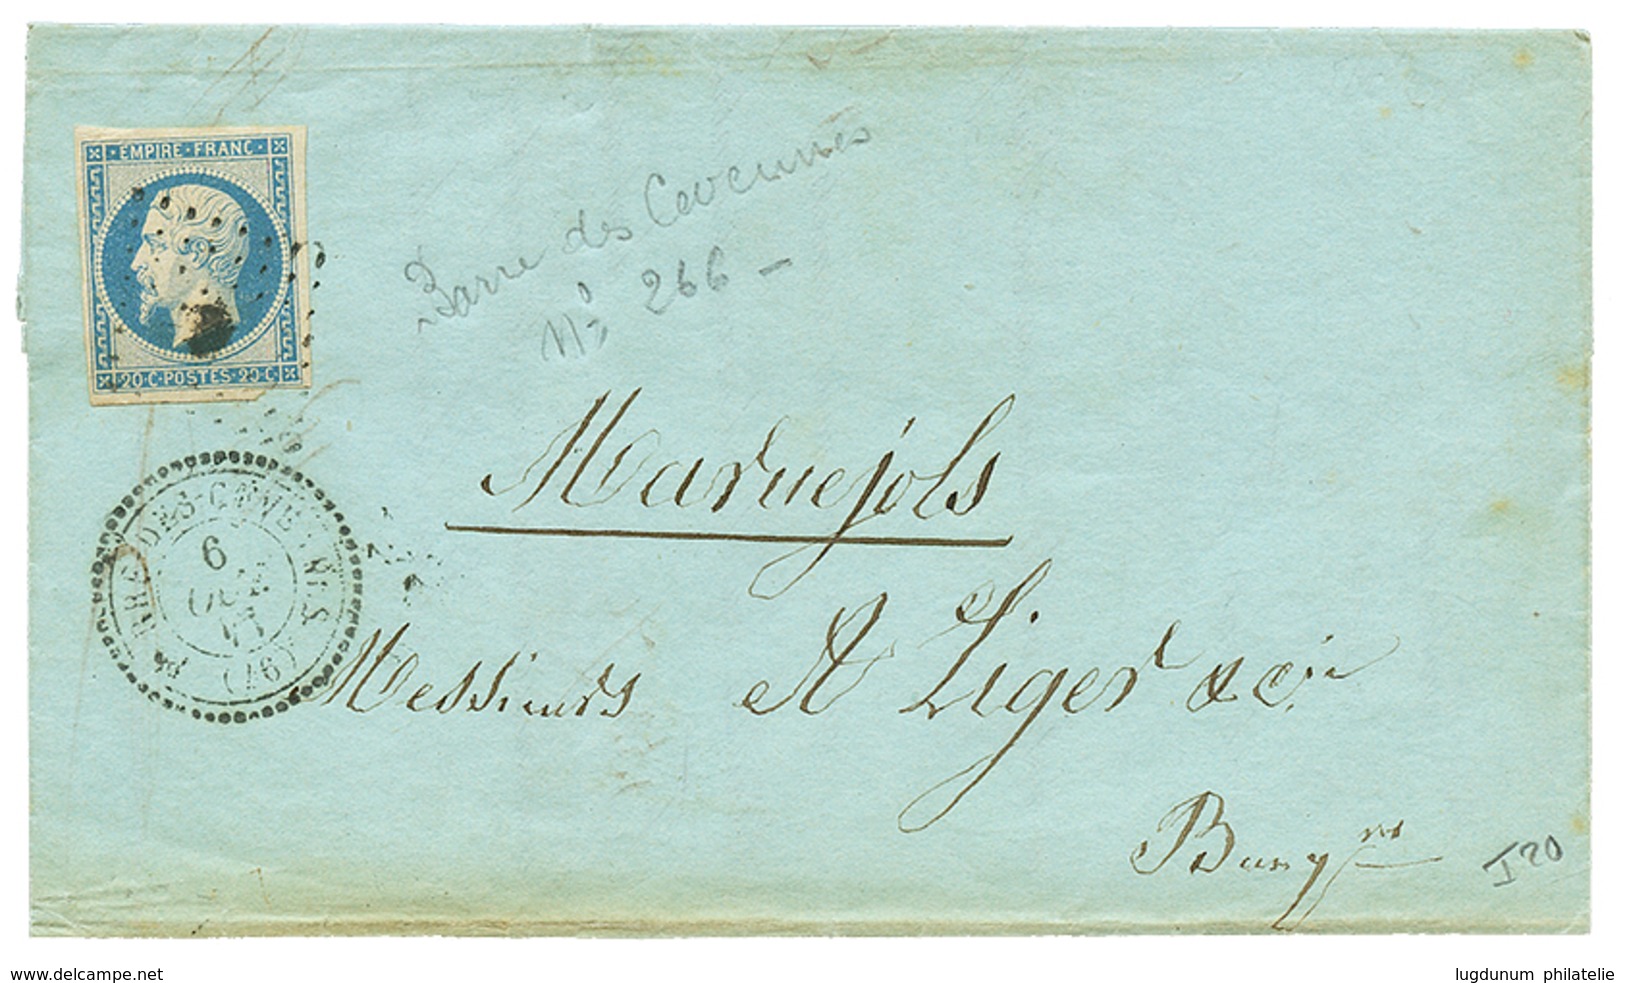 EMPIRE·FRANC·
20·C·POSTES·20·C·
Barre des Cevennes
N° 266 -
Marvejols
DES-CEVENNES
6
(46)
Messieurs A Liger & Cie
Banqrs
I20
www.delcampe.net
lugdunum philatelie